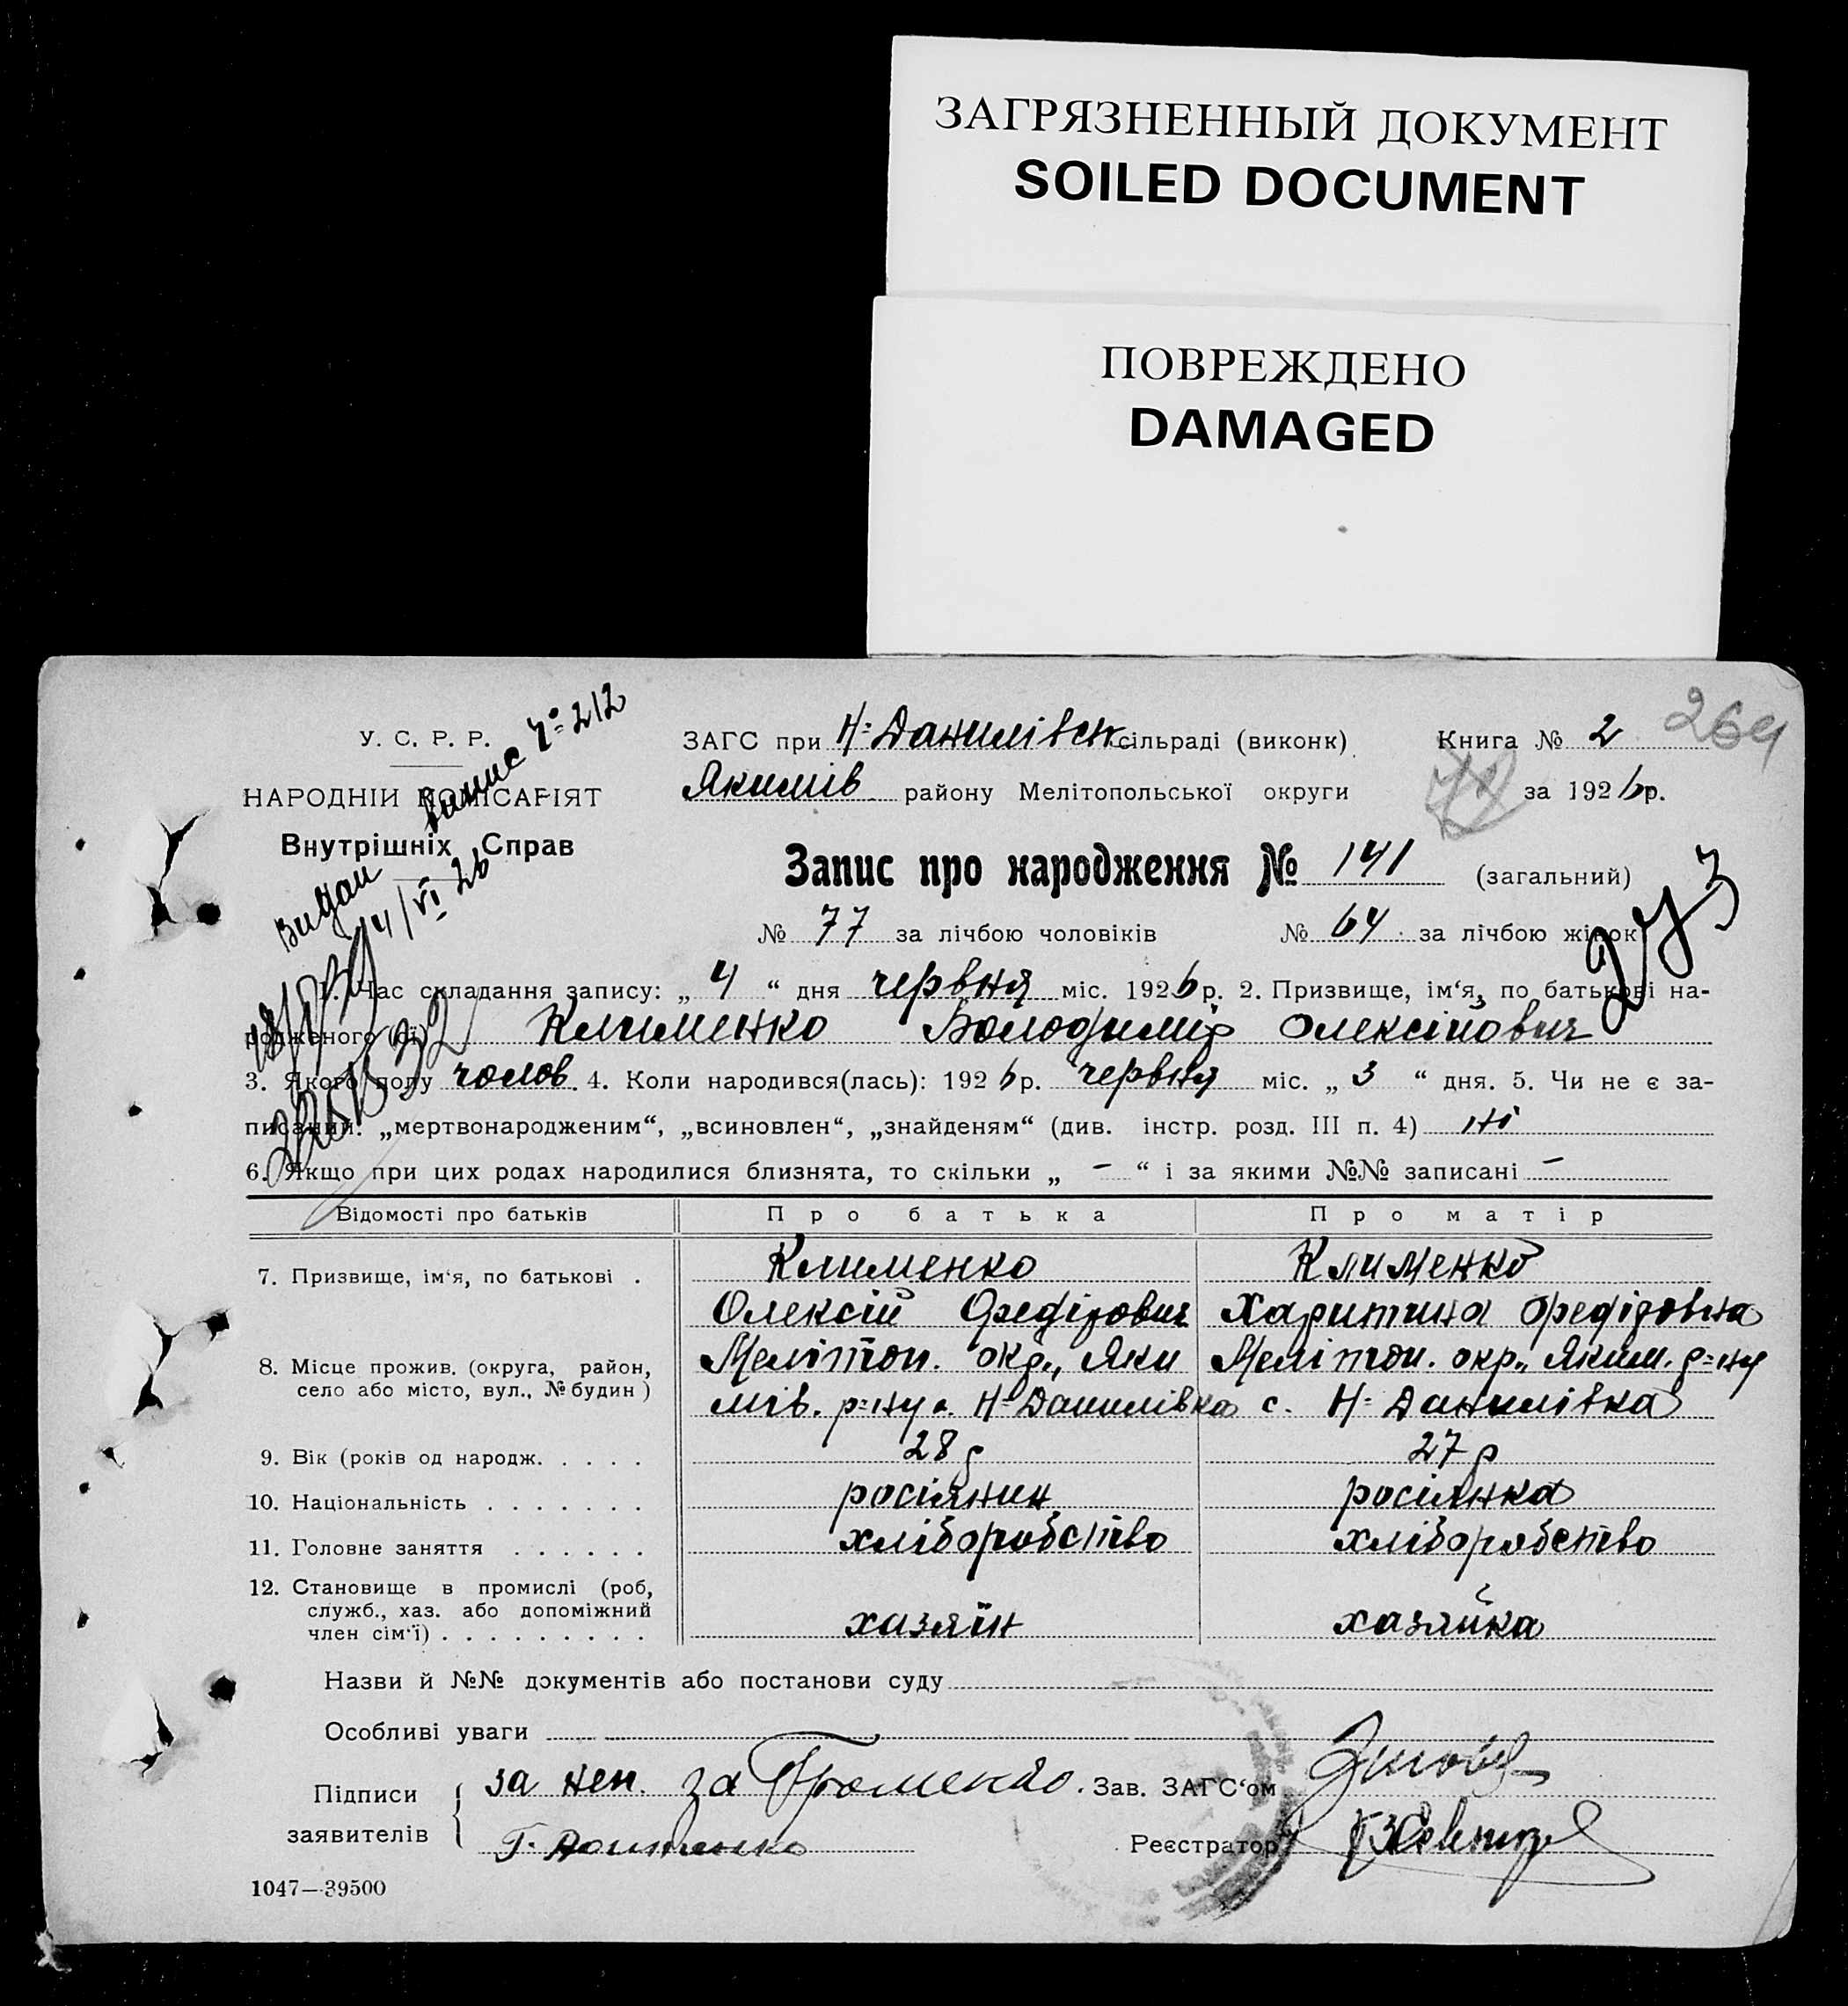 ЗАГРЯЗНЕННЫЙ ДОКУМЕНТ
SOILED DOCUMENT
ПОВРЕЖДЕНО
DAMAGED
264
У. С. Р. Р.
НАРОДНІЙ КОМІСАРІЯТ
Внутрішніх Справ
Видан випис № 212
4/VI 26
ЗАГС при Н=Данилівськ сільраді (виконк) Книга № 2
Якимів району Мелітопольської округи за 1926 р.
Запис про народження № 141 (загальний)
№ 77 за лічбою чоловіків № 64 за лічбою жінок
1. Час складання запису: „ 4 “ дня червня міс. 1926 р. 2. Призвище, ім‘я, по батькові на-
родженого (ої) Клименко Володимір Олексійович
3. Якого полу чолов. 4. Коли народився(лась): 1926 р. червня міс. „ 3 “ дня. 5. Чи не є за-
писаний: „мертвонародженим“, „всиновлен“, „знайденям“ (див. інстр. розд. III п. 4) ні
6. Якщо при цих родах народилися близнята, то скільки „ – “ і за якими №№ записані –
Відомості про батьків Про батька Про матір
7. Призвище, ім‘я, по батькові . Клименко Клименко
Олексій Федірович Харитина Федіровна
8. Місце прожив. (округа, район, Меліton. окр., Яки Меліtop. окр., Яким. р=ну
село або місто, вул., № будин ) мів. р=ну с. Н=Данилівка с. Н=Данилівка
9. Вік (років од народж. . . . . 28 р 27 р
10. Національність . . . . . . . росіянин росіянка
11. Головне заняття . . . . . . хліборобство хліборобство
12. Становище в промислі (роб,
служб., хаз. або допоміжний
член сім‘ї) . . . . . . . . . хазяїн хазяйка
Назви й №№ документів або постанови суду
Особливі уваги
Підписи за неп. за Зав. ЗАГС‘ом
заявителів Г. Реєстратор
1047—39500